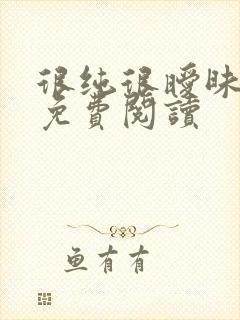 很纯很曖昧
免費閱讀
鱼有有